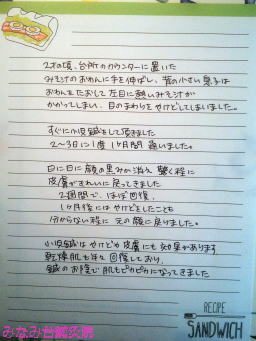 2才の頃、台所のカウンターに置いた
みそ汁のおわんに手を伸ばし、背の小さい息子は
おわんをたおして左目に熱いみそ汁が
かかってしまい、目のまわりをやけどしてしまいました。
すぐに小児鍼をして頂きました
2〜3日に1度 1ヶ月間 通いました。
日に日に顔の黒みが消え 驚く程に
皮膚がきれいに戻ってきました
2週間で、ほぼ回復。
1ヶ月後にはやけどをしたことも
分からない程に 元の顔に戻りました。
小児鍼はやけどや皮膚にも効果があります
乾燥肌も年々回復しており、
鍼のお陰で肌もピカピカになってきました
RECIPE
SANDWICH
みなみ台鍼灸院